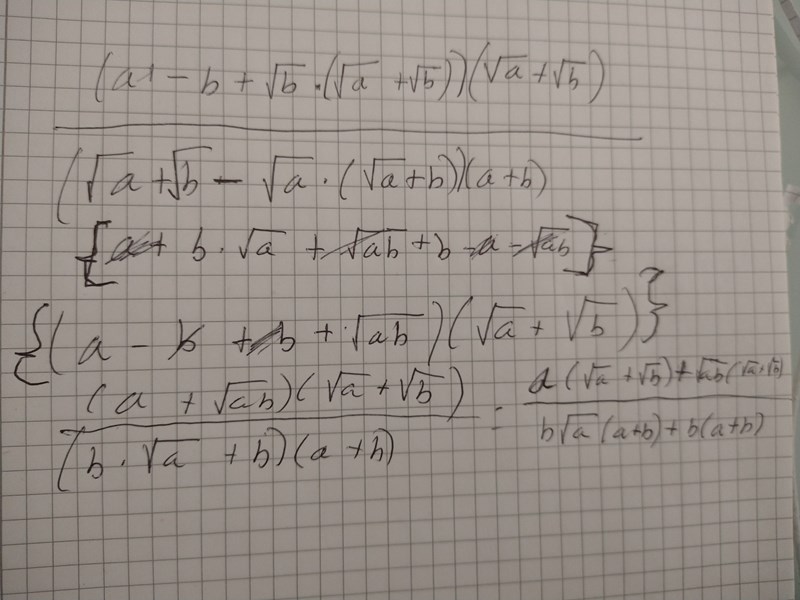 (a - b + √b · (√a + √b))(√a + √b)
(√a + √b - √a · (√a + b))(a + b)
{a + b · √a + √ab + b - a - √ab}
{(a - b + b + √ab)(√a + √b)}
(a + √ab)(√a + √b) = a(√a + √b) + √ab(√a + √b)
(b · √a + b)(a + b) b√a(a+b) + b(a+b)